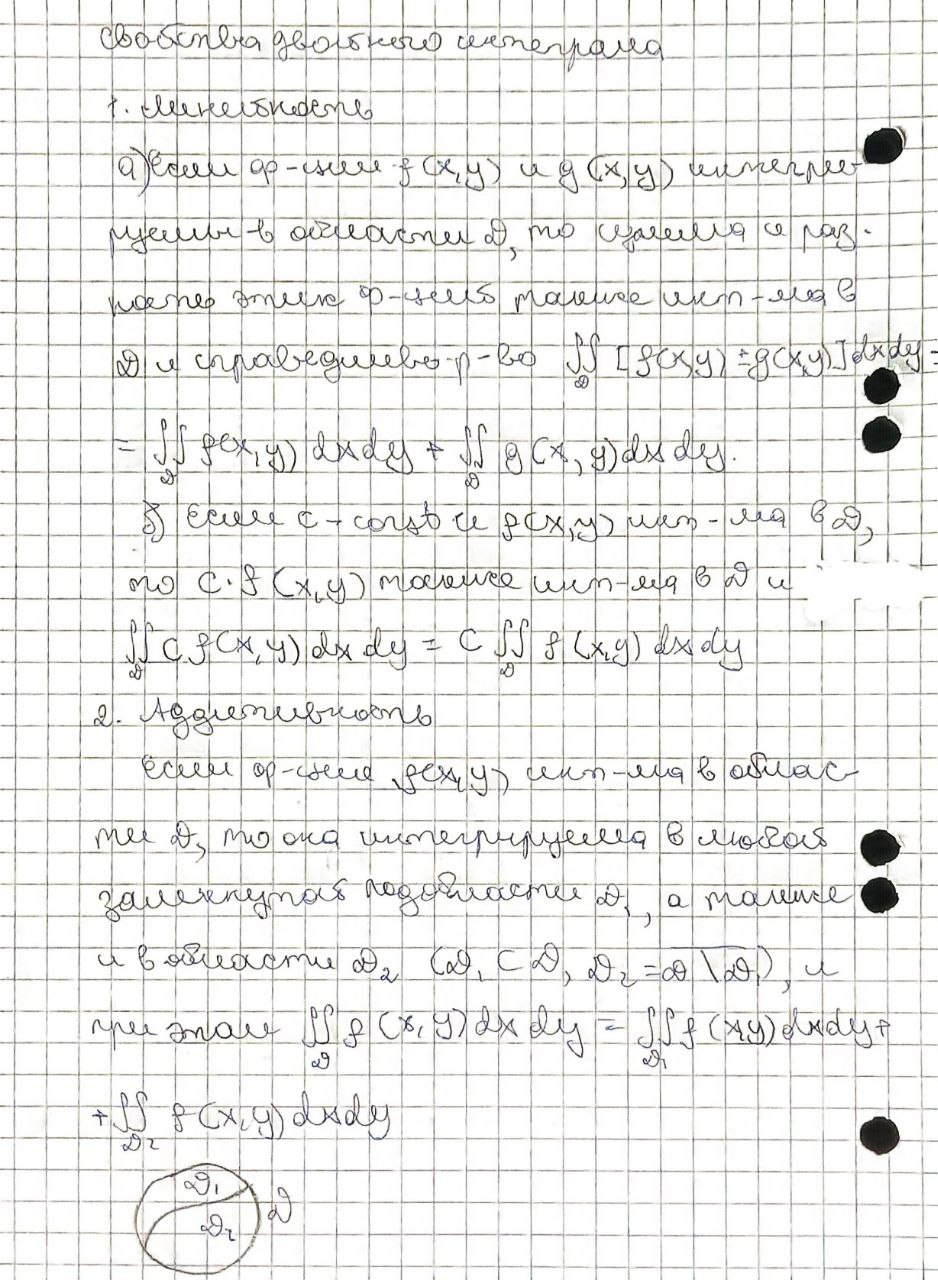 Свойства двойного интеграла
1. Линейность
а) Если ф-ции f(x,y) и g(x,y) интегри-
руемы в области D, то сумма и раз-
ность этих ф-ций также инт-ма в
D и справедливо р-во ∬_D [f(x,y) ± g(x,y)] dxdy =
= ∬_D f(x,y) dxdy + ∬_D g(x,y) dxdy.
б) Если c - const и f(x,y) инт-ма в D,
то C·f(x,y) также инт-ма в D и
∬_D C f(x,y) dxdy = C ∬_D f(x,y) dxdy
2. Аддитивность
Если ф-ция f(x,y) инт-ма в облас-
ти D, то она интегрируема в любой
замкнутой подобласти D₁, а также
и в области D₂ (D₁ ⊂ D, D₂ = \overline{D \ D₁}), и
при этом ∬_D f(x,y) dxdy = ∬_D₁ f(x,y) dxdy +
+ ∬_D₂ f(x,y) dxdy
D₁
D₂ D